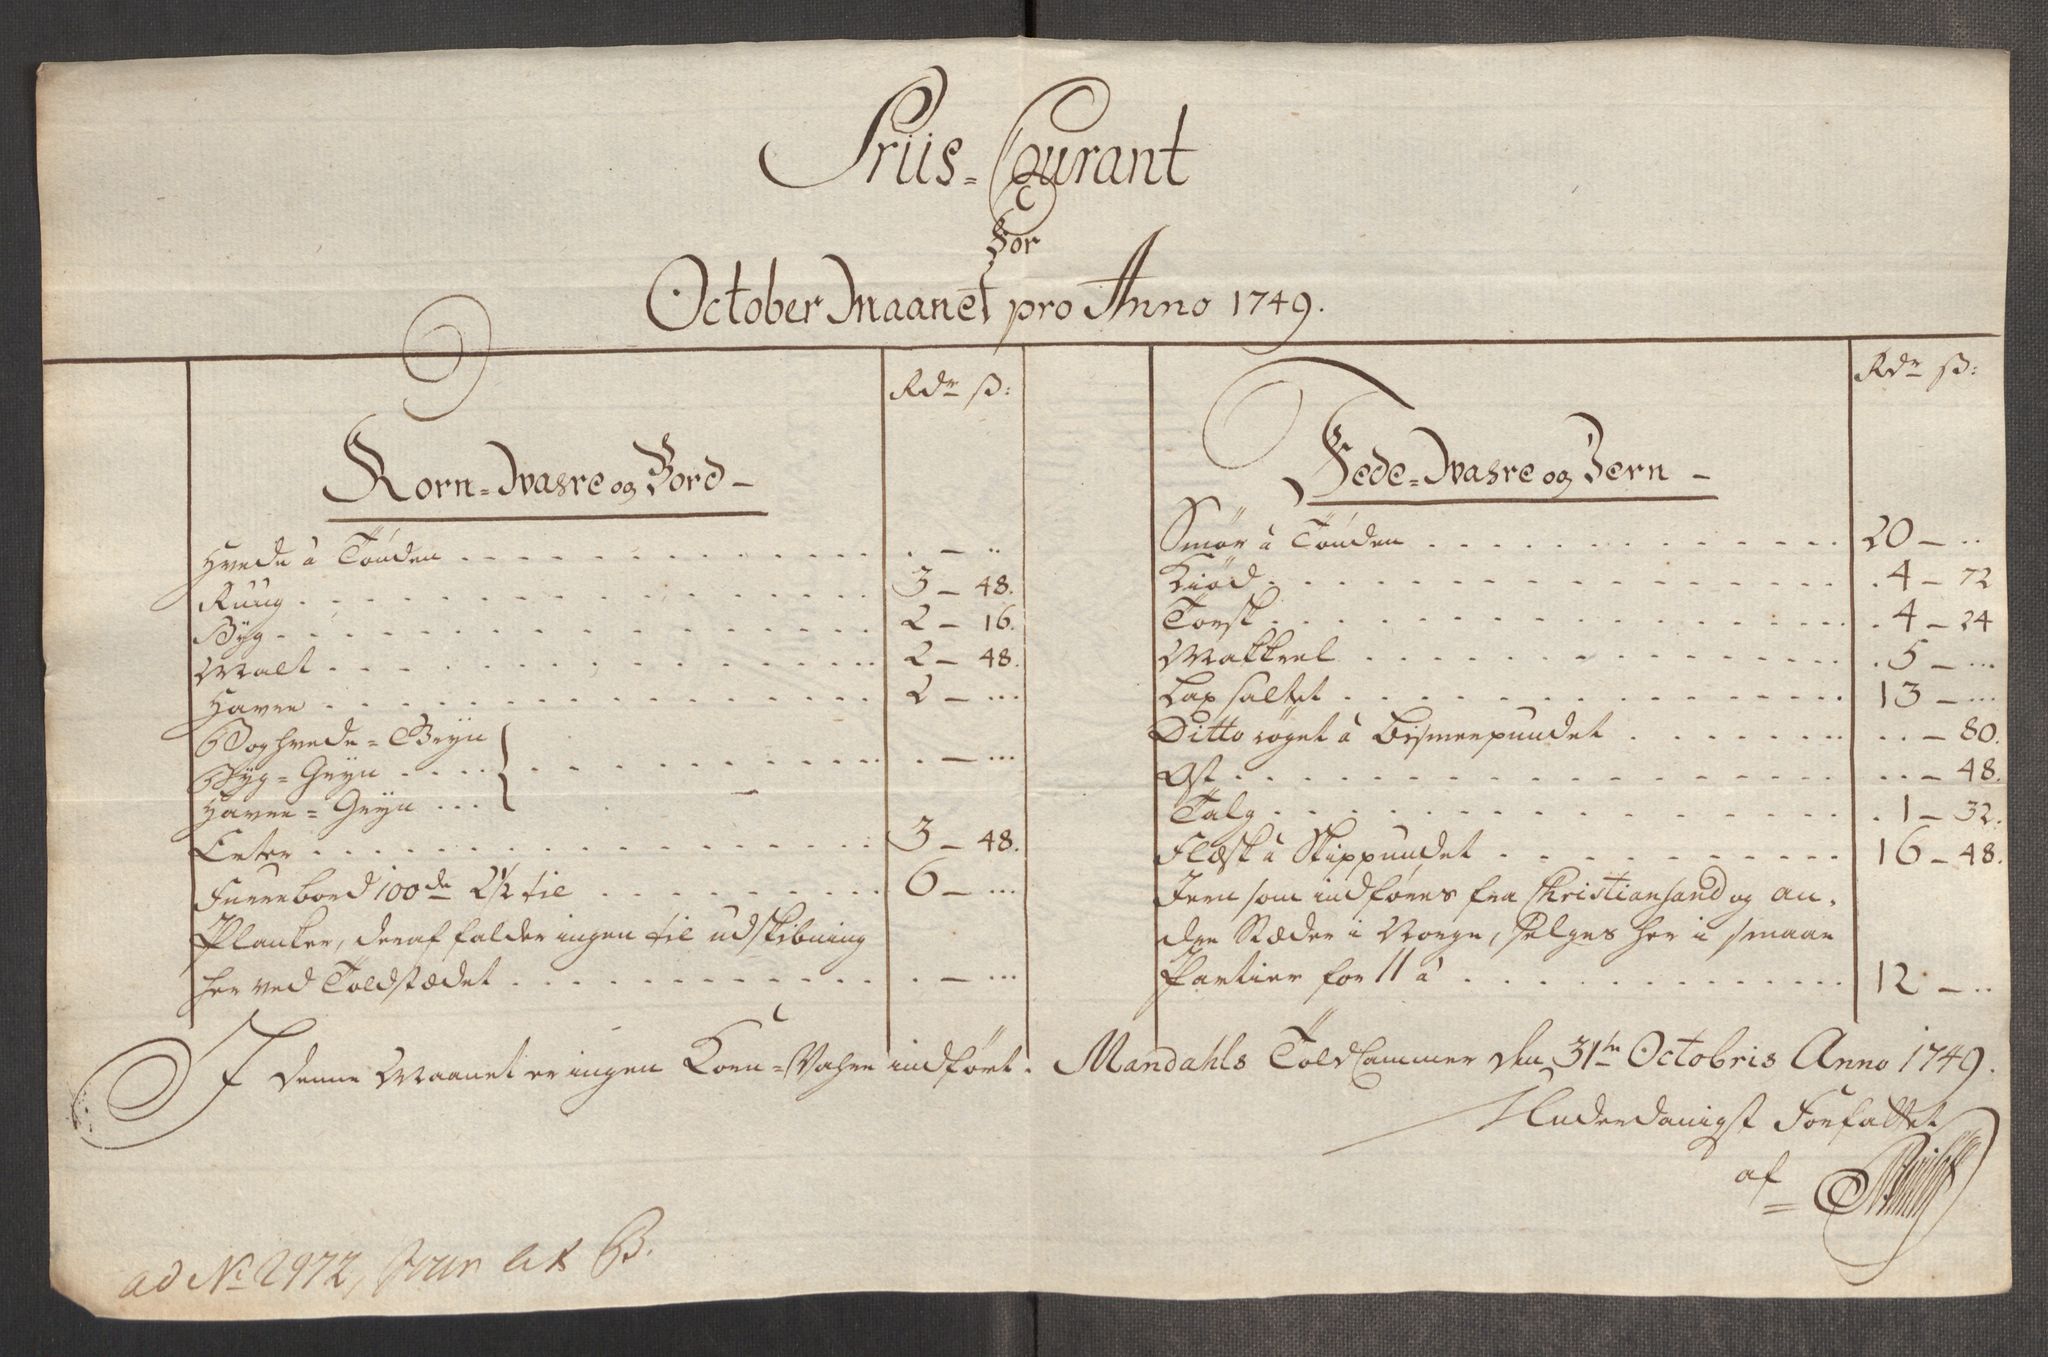 Priis-Courant
For
October Maanet pro Anno 1749.
Rdr ß:
Korn-Wahre og Bord-
Hvede â Tönden . - ..
Ruug 3 - 48.
Byg 2 - 16.
Malt 2 - 48.
Havre 2 - ...
Boghvede-Gryn
Byg-Gryn . - ...
Havre-Gryn
Erter 3 - 48.
Furrebord 100de 2½ til 6 - ...
Planker, deraf falder ingen til udskibning
her ved Toldstædet . - ...
Rdr ß:
Fede-Wahre og Jern -
Smör â Tönden 20 - ..
Kiöd 4 - 72
Torsk 4 - 24
Makkrel 5 - ...
Lax saltet 13 - ...
Ditto röget â Bismerpundet .. - 80.
Ost .. - 48.
Talg 1 - 32.
Flesk â Skippundet 16 - 48.
Jern som indföres fra Christiansand og an-
dre Stæder i Norge, selges her i smaae
Partier for 11 â 12 - ..
I denne Maanet er ingen Korn-Vahre indfört. Mandahls Told Cammer den 31te Octobris Anno 1749.
Underdanigst Forfattet
af
ad No 2972, Jour Lit B.